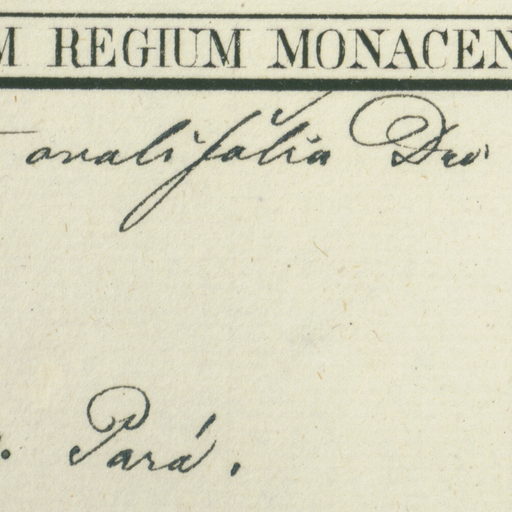 M REGIUM MONACEN
ovalifolia
. Pará.